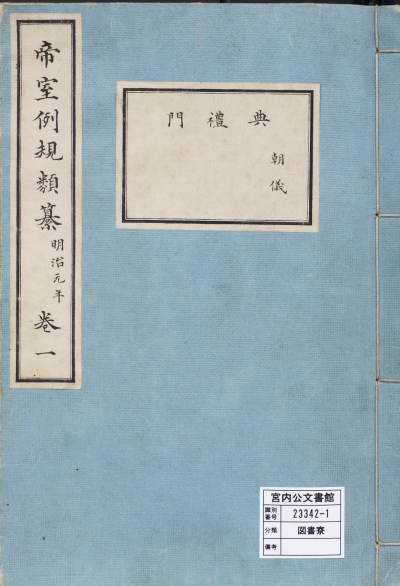 帝室例規類纂 明治元年 卷一
典禮門
朝儀
宮内公文書館
識別番号 23342-1
分類 図書寮
備考